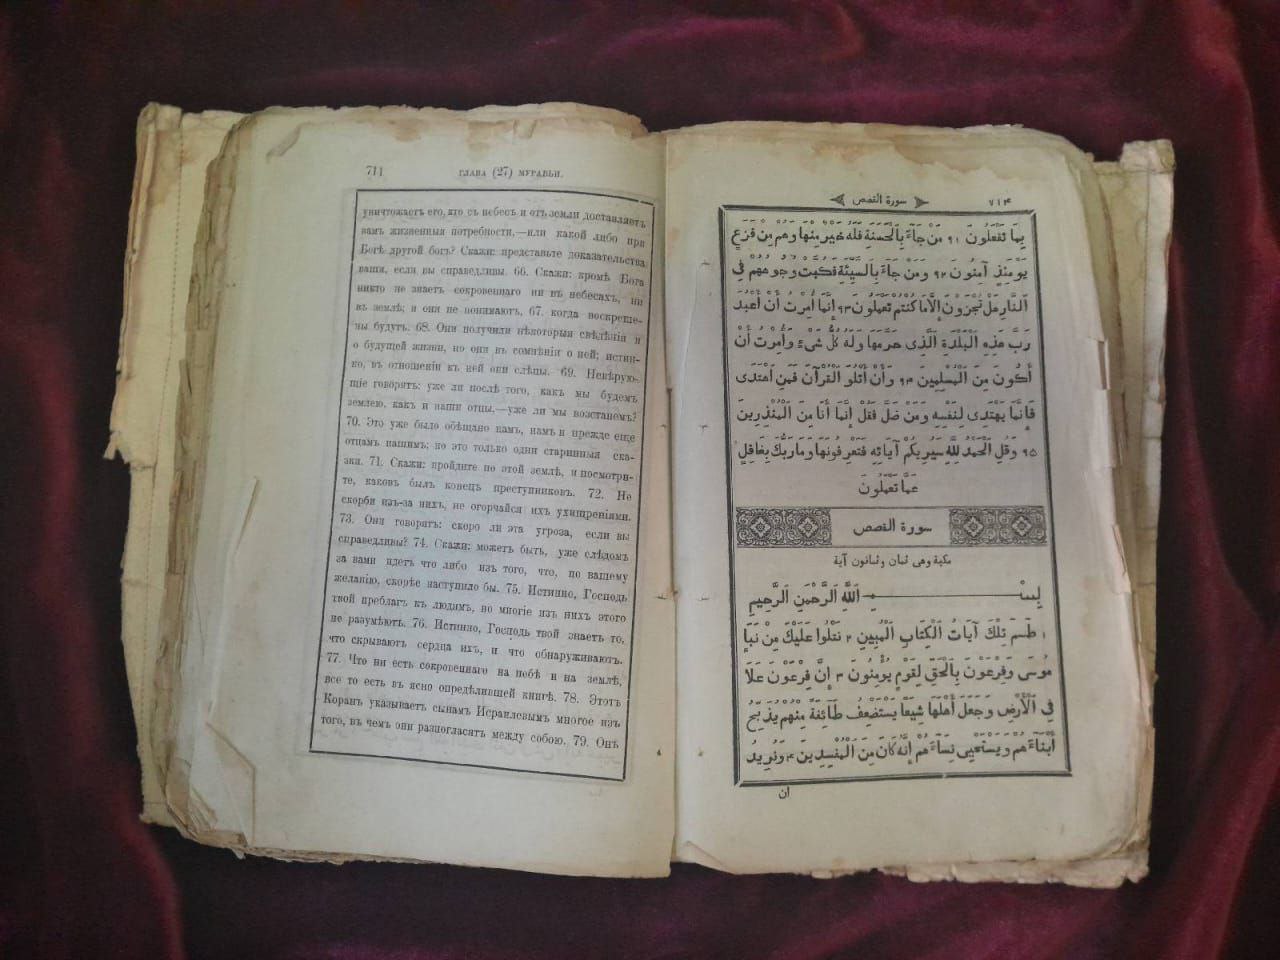 711
ГЛАВА (27) МУРАВЬИ.
уничтожаетъ его, кто съ небесъ и отъ земли доставляетъ
вамъ жизненныя потребности,—или какой либо при
Богѣ другой богъ? Скажи: представьте доказательства
ваши, если вы справедливы. 66. Скажи: кромѣ Бога
никто не знаетъ сокровеннаго ни въ небесахъ, ни
въ землѣ; и они не понимаютъ, 67. когда воскреше-
ны будутъ. 68. Они получили нѣкоторыя свѣдѣнія и
о будущей жизни, но они въ сомнѣніи о ней; истин-
но, въ отношеніи къ ней они слѣпы. 69. Невѣрую-
щіе говорятъ: уже ли послѣ того, какъ мы будемъ
землею, какъ и наши отцы,—уже ли мы возстанемъ?
70. Это уже было обѣщано намъ, намъ и прежде еще
отцамъ нашимъ; но это только одни старинныя ска-
зки. 71. Скажи: пройдите по этой землѣ, и посмотри-
те, каковъ былъ конецъ преступниковъ. 72. Не
скорби изъ-за нихъ, не огорчайся ихъ ухищреніями.
73. Они говорятъ: скоро ли эта угроза, если вы
справедливы? 74. Скажи: можетъ быть, уже слѣдомъ
за вами идетъ что либо изъ того, что, по вашему
желанію, скорѣе наступило бы. 75. Истинно, Господь
твой преблагъ къ людямъ, но многіе изъ нихъ этого
не разумѣютъ. 76. Истинно, Господь твой знаетъ то,
что скрываютъ сердца ихъ, и что обнаруживаютъ.
77. Что ни есть сокровеннаго на небѣ и на землѣ,
все то есть въ ясно опредѣлившей книгѣ. 78. Этотъ
Коранъ указываетъ сынамъ Исраилевымъ многое изъ
того, въ чемъ они разногласятъ между собою. 79. Онъ
سورة القصص
٧١٢
بِمَا تَفْعَلُونَ ٩١ مَنْ جَاءَ بِالْحَسَنَةِ فَلَهُ خَيْرٌ مِنْهَا وَهُمْ مِنْ فَزَعٍ
يَوْمَئِذٍ آمِنُونَ ٩٢ وَمَنْ جَاءَ بِالسَّيِّئَةِ فَكُبَّتْ وُجُوهُهُمْ فِي
النَّارِ هَلْ تُجْزَوْنَ إِلَّا مَا كُنْتُمْ تَعْمَلُونَ ٩٣ إِنَّمَا أُمِرْتُ أَنْ أَعْبُدَ
رَبَّ هَذِهِ الْبَلْدَةِ الَّذِي حَرَّمَهَا وَلَهُ كُلُّ شَيْءٍ وَأُمِرْتُ أَنْ
أَكُونَ مِنَ الْمُسْلِمِينَ ٩٤ وَأَنْ أَتْلُوَ الْقُرْآنَ فَمَنِ اهْتَدَى
فَإِنَّمَا يَهْتَدِي لِنَفْسِهِ وَمَنْ ضَلَّ فَقُلْ إِنَّمَا أَنَا مِنَ الْمُنْذِرِينَ
٩٥ وَقُلِ الْحَمْدُ لِلَّهِ سَيُرِيكُمْ آيَاتِهِ فَتَعْرِفُونَهَا وَمَا رَبُّكَ بِغَافِلٍ
عَمَّا تَعْمَلُونَ
سورة القصص
مكية وهى ثمان وثمانون آية
بِسْمِ اللَّهِ الرَّحْمَنِ الرَّحِيمِ
١ طسم تِلْكَ آيَاتُ الْكِتَابِ الْمُبِينِ ٢ نَتْلُوا عَلَيْكَ مِنْ نَبَإِ
مُوسَى وَفِرْعَوْنَ بِالْحَقِّ لِقَوْمٍ يُؤْمِنُونَ ٣ إِنَّ فِرْعَوْنَ عَلَا
فِي الْأَرْضِ وَجَعَلَ أَهْلَهَا شِيَعًا يَسْتَضْعِفُ طَائِفَةً مِنْهُمْ يُذَبِّحُ
أَبْنَاءَهُمْ وَيَسْتَحْيِي نِسَاءَهُمْ إِنَّهُ كَانَ مِنَ الْمُفْسِدِينَ ٤ وَنُرِيدُ
ان